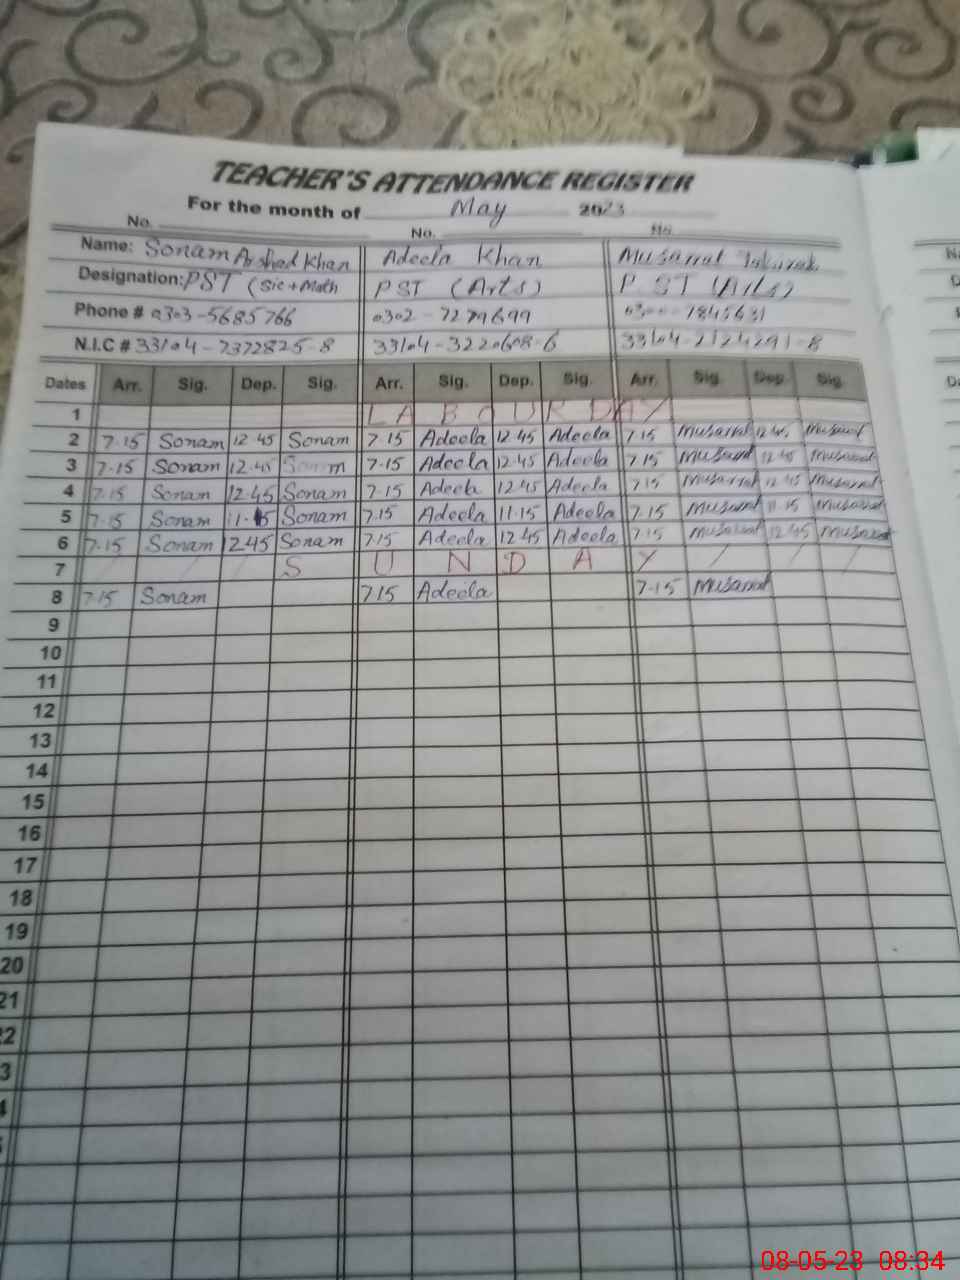 TEACHER'S ATTENDANCE REGISTER
For the month of May 2023
No. No. No.
Name: Sonam Arshad Khan Adeela Khan Musarrat
Designation: PST (Sic+Math PST (Arts) PST (Arts)
Phone # 0303-5685766 0302-7279699 7845631
N.I.C # 33104-7372825-8 33104-3220608-6 33104-2124291-8
Dates Arr. Sig. Dep. Sig. Arr. Sig. Dep. Sig. Arr. Sig. Dep. Sig.
1 LABOUR DAY
2 7.15 Sonam 12.45 Sonam 7.15 Adeela 12.45 Adeela 7.15 Musarrat 12.45 Musarrat
3 7.15 Sonam 12.45 Sonam 7.15 Adeela 12.45 Adeela 7.15 Musarrat 12.45 Musarrat
4 7.15 Sonam 12.45 Sonam 7.15 Adeela 12.45 Adeela 7.15 Musarrat 12.45 Musarrat
5 7.15 Sonam 11.15 Sonam 7.15 Adeela 11.15 Adeela 7.15 Musarrat 11.15 Musarrat
6 7.15 Sonam 12.45 Sonam 7.15 Adeela 12.45 Adeela 7.15 Musarrat 12.45 Musarrat
7 / / / S U N D A Y / / /
8 7.15 Sonam 7.15 Adeela 7.15 Musarrat
9
10
11
12
13
14
15
16
17
18
19
20
21
2
3
4
08-05-23 08:34